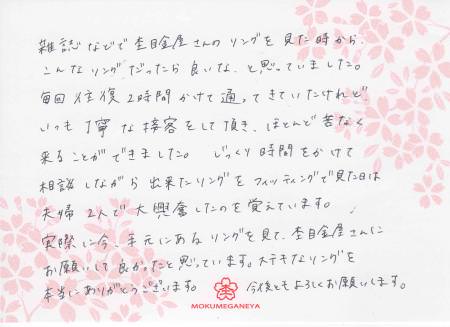 雑誌などで杢目金屋さんのリングを見た時から、
こんなリングだったら良いな、と思っていました。
毎回往復2時間かけて通ってきていたけれど
いつも丁寧な接客をして頂き、ほとんど苦なく
来ることができました。じっくり時間をかけて
相談しながら出来たリングをフィッティングで見た日は
夫婦2人で大興奮したのを覚えています。
実際に今、手元にあるリングを見て、杢目金屋さんに
お願いして良かったと思っています。ステキなリングを
本当にありがとうございます。今後ともよろしくお願いします。
MOKUMEGANEYA